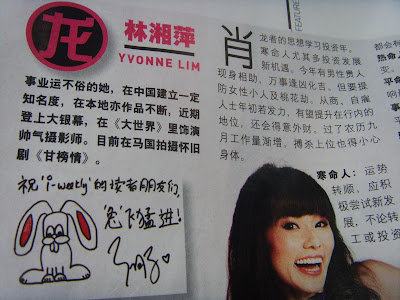 龙
林湘萍
YVONNE LIM
FEATURE
事业运不俗的她，在中国建立一定
知名度，在本地亦作品不断，近期
登上大银幕，在《大世界》里饰演
帅气摄影师。目前在马国拍摄怀旧
剧《甘榜情》。
祝“i-weekly”的读者朋友们，
“兔”飞猛进！
肖龙者的思想学习投资年。
寒命人尤其多投资发展
新机遇，今年有男性贵人
现身相助，万事逢凶化吉，但要提
防女性小人及桃花劫。从商、自雇
人士年初若发力，有望提升在行内的
地位，还会得意外财。过了农历九
月工作量渐增，搏杀上位也得小心
身体。
寒命人：运势
转顺，应积
极尝试新发
展，不论转
工或投资
都会有
热命人
变。
平命
明